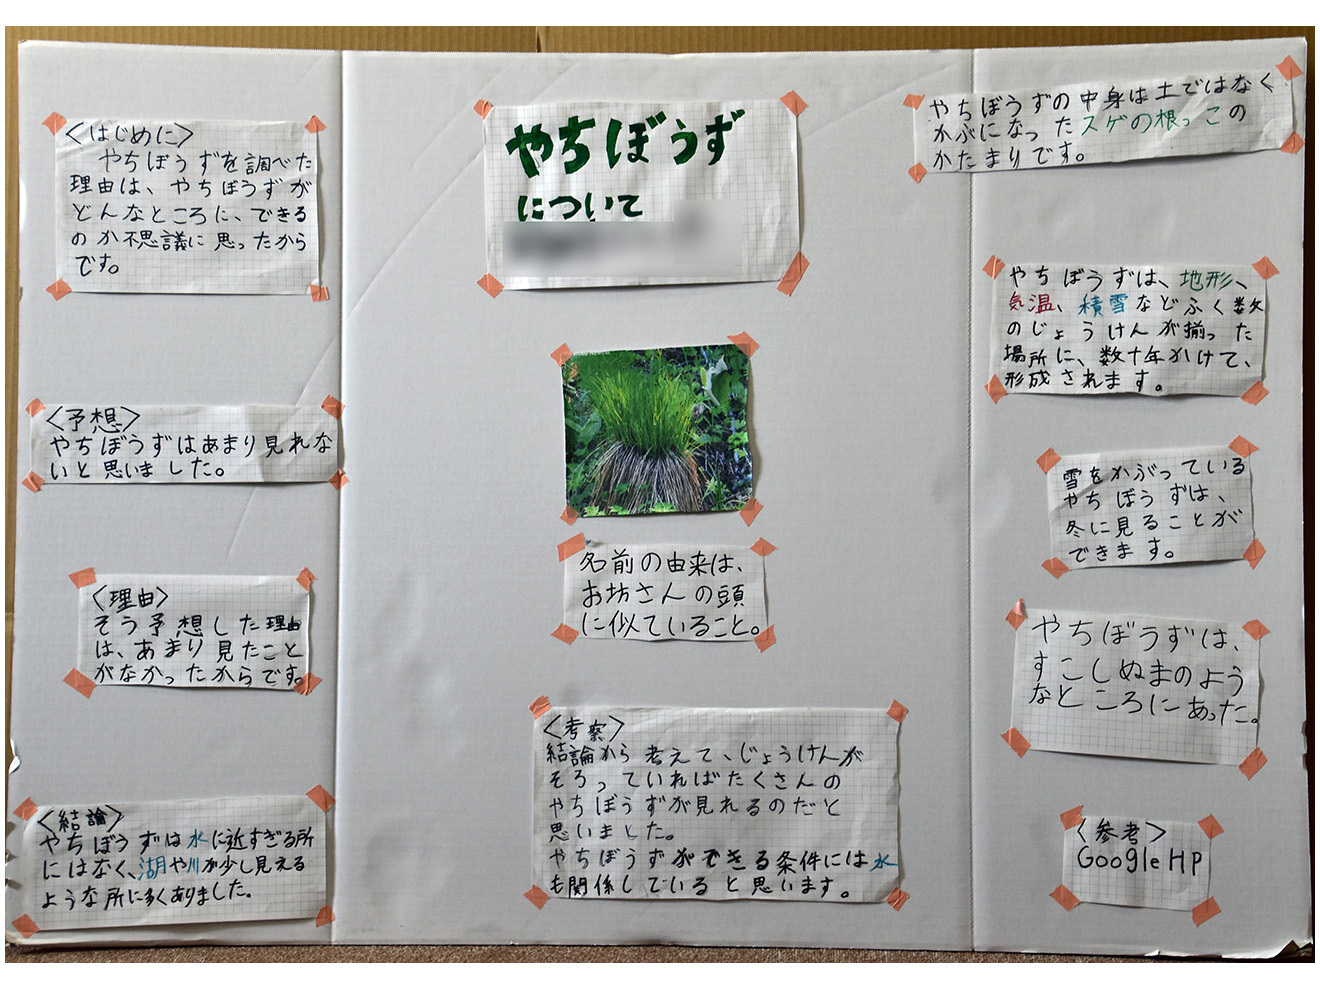 やちぼうず
について
<はじめに>
やちぼうずを調べた
理由は、やちぼうずが
どんなところに、できる
のか不思議に思ったから
です。
<予想>
やちぼうずはあまり見れな
いと思いました。
<理由>
そう予想した理由
は、あまり見たこと
がなかったからです。
<結論>
やちぼうずは水に近すぎる所
にはなく、湖や川が少し見える
ような所に多くありました。
名前の由来は、
お坊さんの頭
に似ていること。
<考察>
結論から考えて、じょうけんが
そろっていればたくさんの
やちぼうずが見れるのだと
思いました。
やちぼうずができる条件には水
も関係しでいると思います。
やちぼうずの中身は土ではなく
かぶになったスゲの根っこの
かたまりです。
やちぼうずは、地形、
気温、積雪などふく数
のじょうけんが揃った
場所に、数十年かけて、
形成されます。
雪をかぶっている
やちぼうずは、
冬に見ることが
できます。
やちぼうずは、
すこしぬまのよう
なところにあった。
<参考>
Google HP